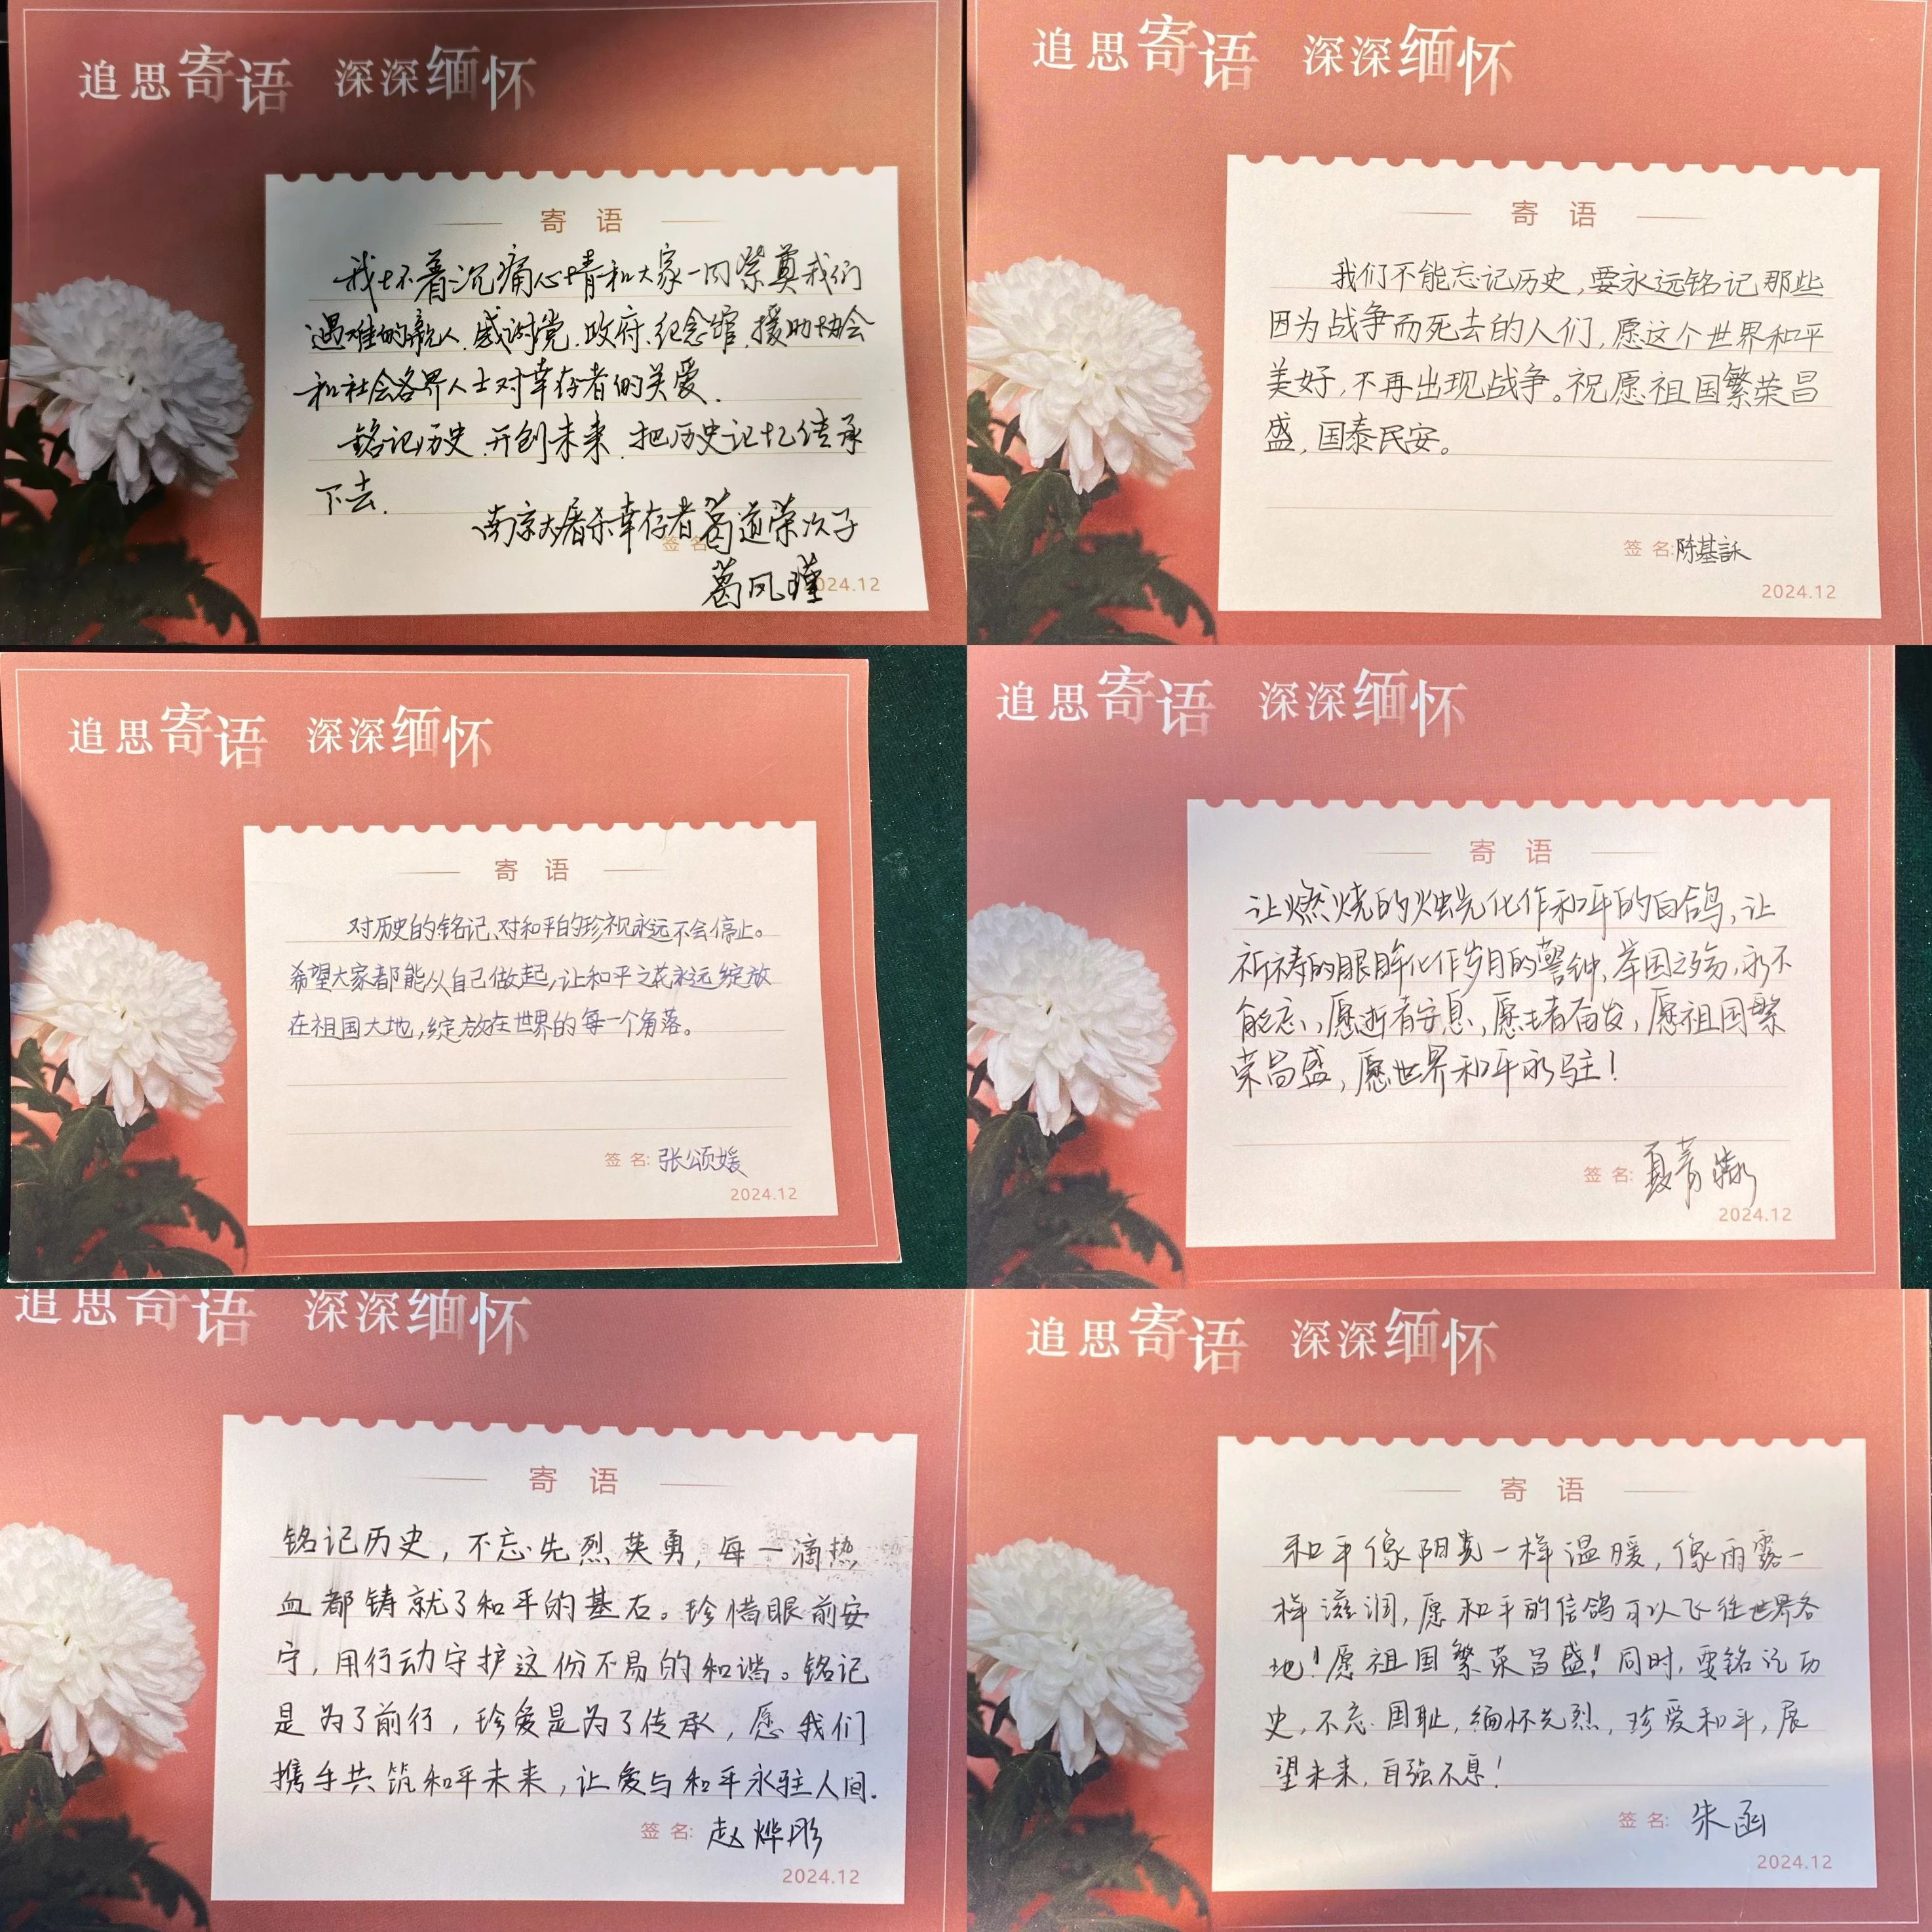 追思寄语 深深缅怀
寄 语
我怀着沉痛心情和大家一同祭奠我们
遇难的亲人.感谢党.政府.纪念馆.援助协会
和社会各界人士对幸存者的关爱.
铭记历史.开创未来.把历史记忆传承
下去.
南京大屠杀幸存者葛道荣次子
签 名
葛凤瑾
2024.12
追思寄语 深深缅怀
寄 语
我们不能忘记历史,要永远铭记那些
因为战争而死去的人们,愿这个世界和平
美好,不再出现战争。祝愿祖国繁荣昌
盛,国泰民安。
签 名:陈基
2024.12
追思寄语 深深缅怀
寄 语
对历史的铭记、对和平的珍视永远不会停止。
希望大家都能从自己做起,让和平之花永远绽放
在祖国大地,绽放在世界的每一个角落。
签 名:张颂媛
2024.12
追思寄语 深深缅怀
寄 语
让燃烧的烛光化作和平的白鸽,让
祈祷的眼眸化作岁月的警钟,举国之殇,永不
能忘,愿逝者安息,愿生者奋发,愿祖国繁
荣昌盛,愿世界和平永驻!
签 名:夏青
2024.12
追思寄语 深深缅怀
寄 语
铭记历史,不忘先烈英勇,每一滴热
血都铸就了和平的基石。珍惜眼前安
宁,用行动守护这份不易的和谐。铭记
是为了前行,珍爱是为了传承,愿我们
携手共筑和平未来,让爱与和平永驻人间.
签 名:赵烨彤
2024.12
追思寄语 深深缅怀
寄 语
和平像阳光一样温暖,像雨露一
样滋润,愿和平的信鸽可以飞往世界各
地!愿祖国繁荣昌盛!同时,要铭记历
史,不忘国耻,缅怀先烈,珍爱和平,展
望未来,自强不息!
签 名:朱函
2024.12